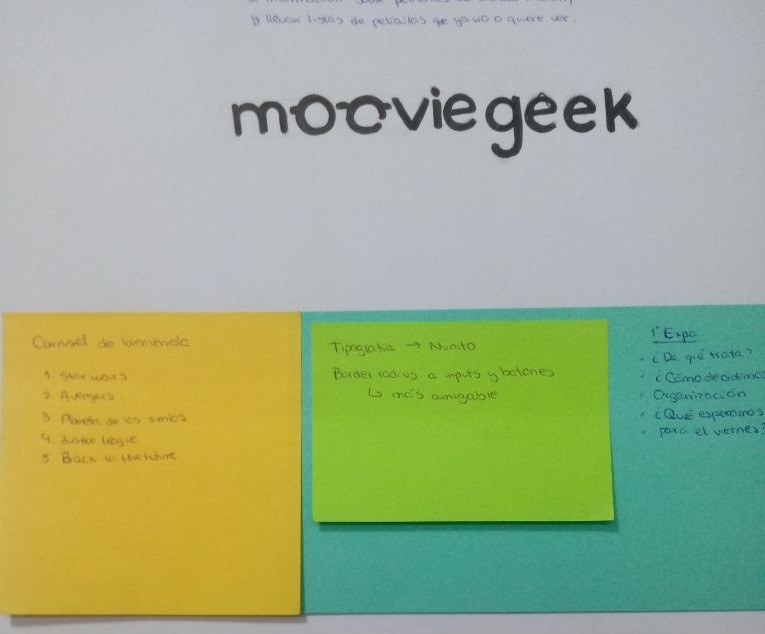 Información sobre películas de
y llevar listas de películas que ya vio o quiere ver.
mooviegeek
Carrusel de bienvenida
1. Star wars
2. Avengers
3. Planeta de los simios
4. Justice league
5. Back to the future
Tipografía → Nunito
Border radius a inputs y botones
↳ más amigable
1° Expo
- ¿De qué trata?
- ¿Cómo decidimos
- Organización
- ¿Qué esperamos
para el viernes?